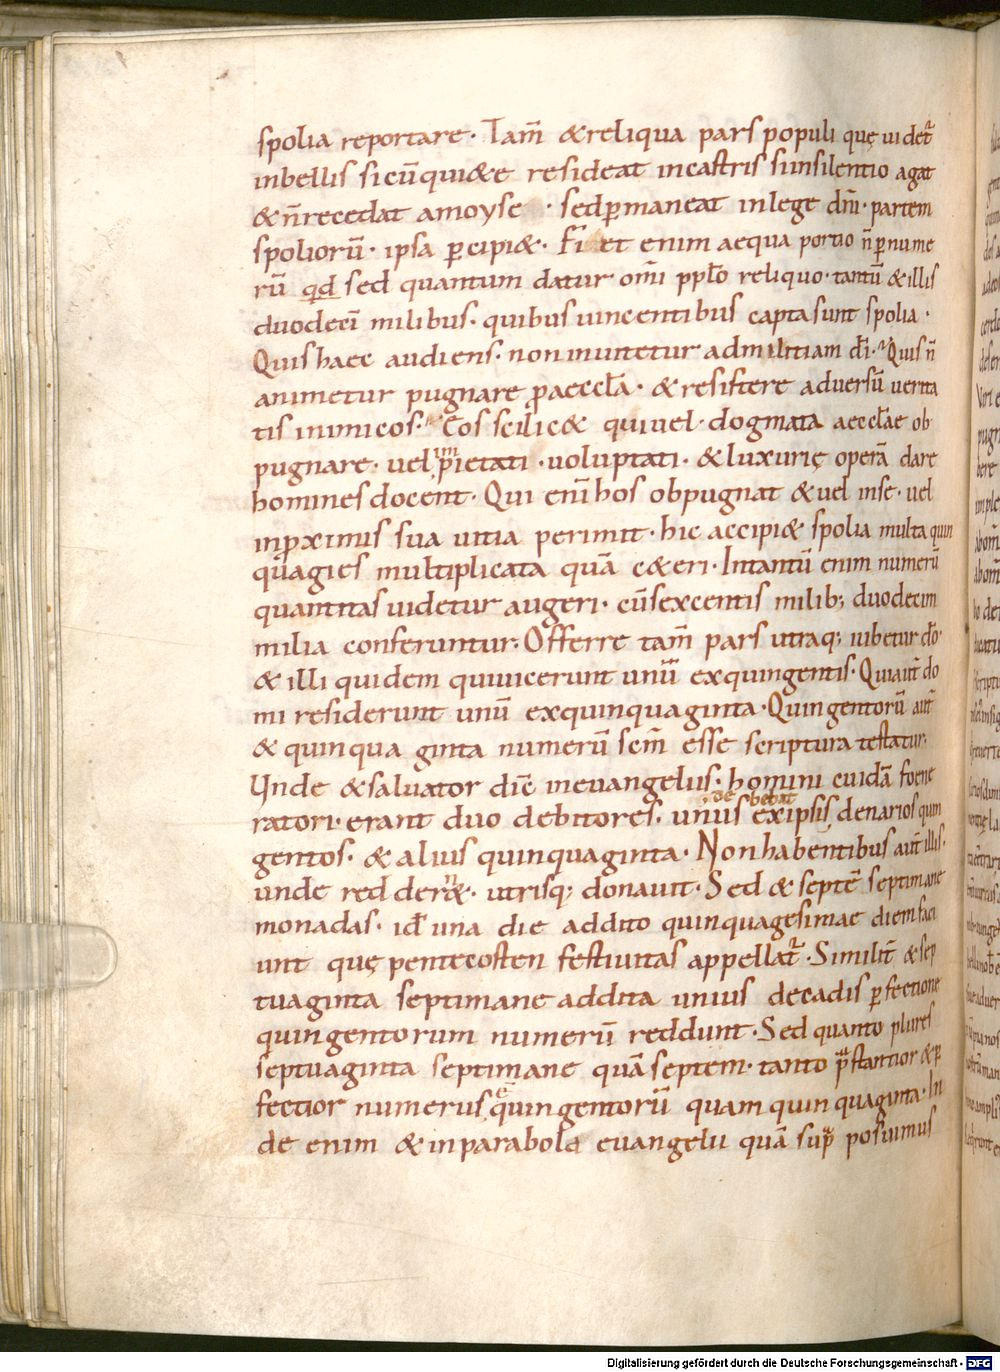 spolia reportare · Tam̄ &reliqua pars populi quę uidet᷑
inbellis sicū quiꝺ&e resideat incastris sinsilentio agat
& n̄ recedat amoyse · sedꝑmaneat inlege dn̄i · partem
spoliorū · ipsa ꝑcipi& · Fiet enim aequa portio n̄ ꝑ nume
rū qd sed quantum datur om̄i pplo reliquo · tantū & illis
duodecī milibus · quibus uincentibus capta sunt spolia ·
Quis haec audiens · non inuitetur admilitiam dī · Quis n̄
animetur pugnare ꝓaeccl̄a · & resistere aduersū uerita
tis inimicos · Eos scilic& qui uel · dogmata aeccl̄ae ob
pugnare · uel īmpietati · uoluptati · & luxurię operā dare
homines docent · Qui enī hos obpugnat & uel inse · uel
inꝓximis sua uitia perimit · hic accipi& spolia multa quin
quagies multiplicata quā c&eri · Intantū enim numerū
quantitas uidetur augeri · cū sexcentis milib; duodecim
milia conferuntur · Offerre tam̄ pars utraq; iubetur dō ·
& illi quidem qui uicerunt unū exquingentis · Quiaut̄ do
mi residerunt unū exquinquaginta · Quingentorū aut̄
& quinquaginta numerū scm̄ esse scriptura testatur ·
Unde & saluator dic̄ ineuangeliis · homini cuidā foene
ratori · erant duo debitores · unus exipsis debebat denarios quin
gentos · & alius quinquaginta · Non habentibus aut̄ illis ·
unde redder&nt · utrisq; donauit · Sed & septē septimane
monadas · id ē una die addito quinquagesimae diem faci
unt quę pentecosten festiuitas appellat᷑ · Similit̄ & sep
tuaginta septimane addita unius decadis ꝑfectione
quingentorum numerū reddunt · Sed quanto plures
septuaginta septimane quā septem · tanto p̄stantior & ꝑ
fectior numerus ē quingentorū quam quinquaginta · In
de enim & inparabola euangelii quā sup̄ posuimus
Digitalisierung gefördert durch die Deutsche Forschungsgemeinschaft - DFG